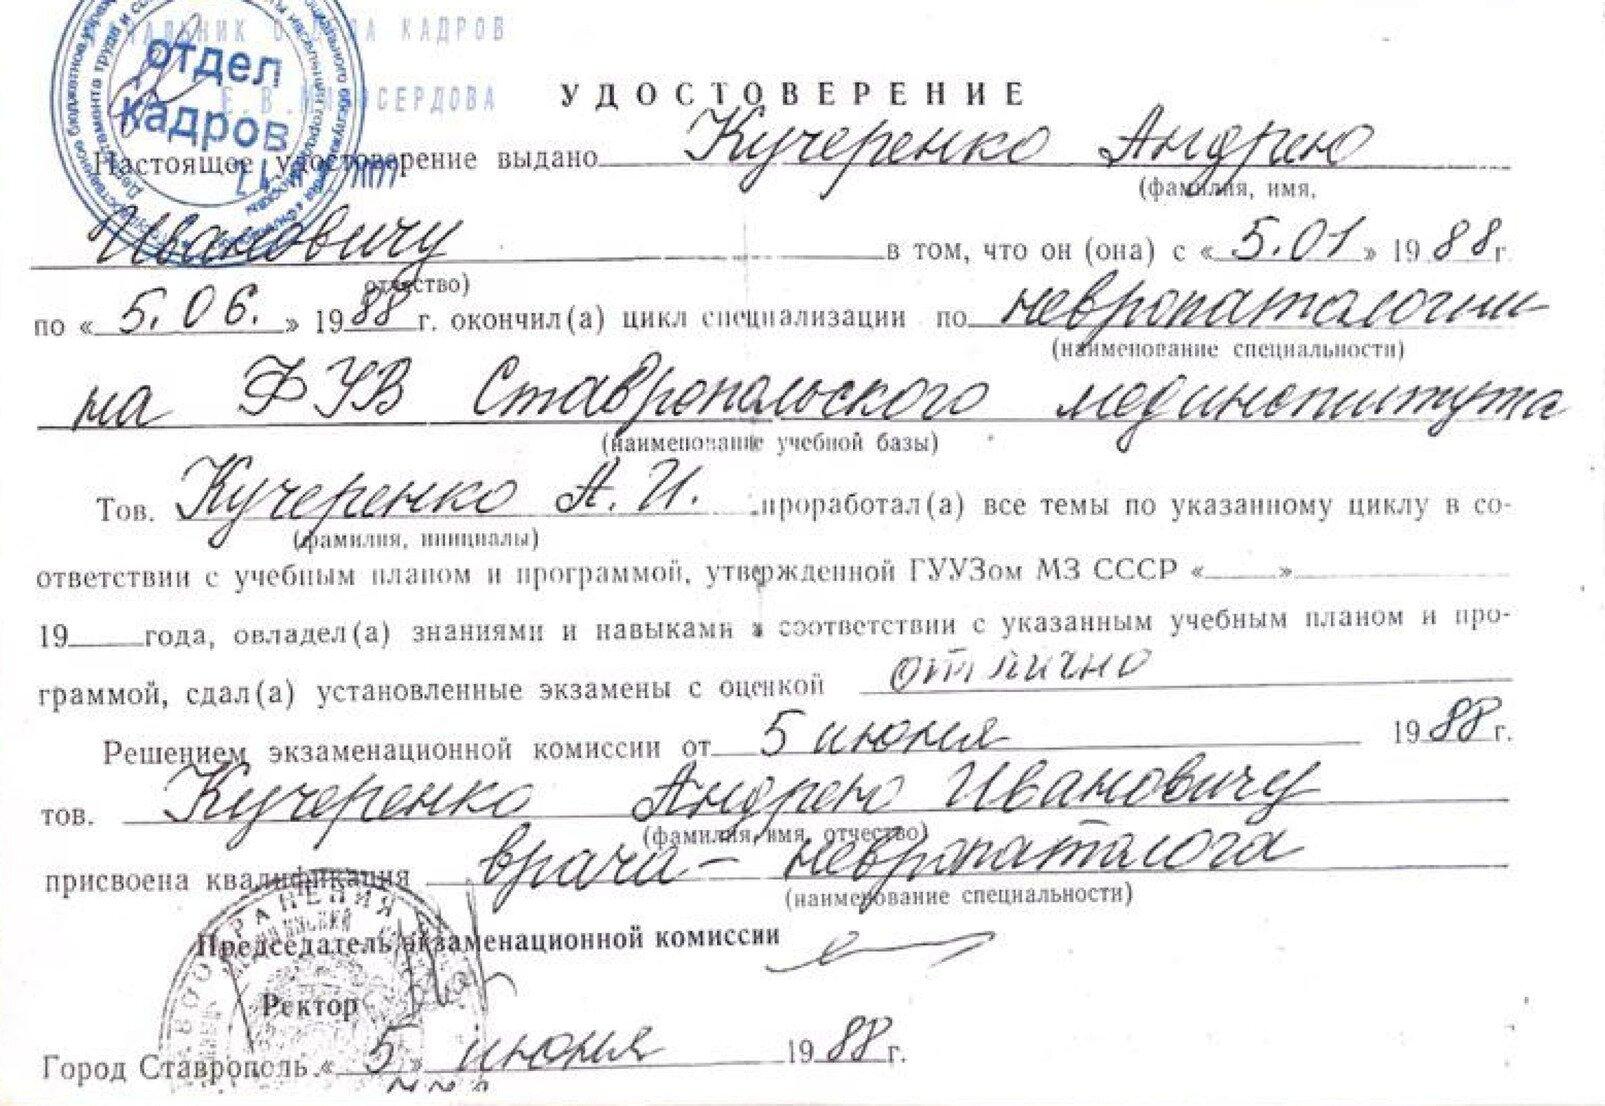 КАДРОВ
отдел
кадров
УДОСТОВЕРЕНИЕ
Настоящее удостоверение выдано Кучеренко Андрею
(фамилия, имя,
Ивановичу в том, что он (она) с «5.01» 1988г.
отчество)
по «5.06.» 1988 г. окончил(а) цикл специализации по невропатологии
(наименование специальности)
на ФУВ Ставропольского мединститута
(наименование учебной базы)
Тов. Кучеренко А. И. проработал(а) все темы по указанному циклу в со-
(фамилия, инициалы)
ответствии с учебным планом и программой, утвержденной ГУУЗом МЗ СССР «____»
19____года, овладел(а) знаниями и навыками в соответствии с указанным учебным планом и про-
граммой, сдал(а) установленные экзамены с оценкой отлично
Решением экзаменационной комиссии от 5 июня 1988г.
тов. Кучеренко Андрею Ивановичу
(фамилия, имя, отчество)
присвоена квалификация врача-невропатолога
(наименование специальности)
Председатель экзаменационной комиссии
Ректор
Город Ставрополь «5» июня 1988г.